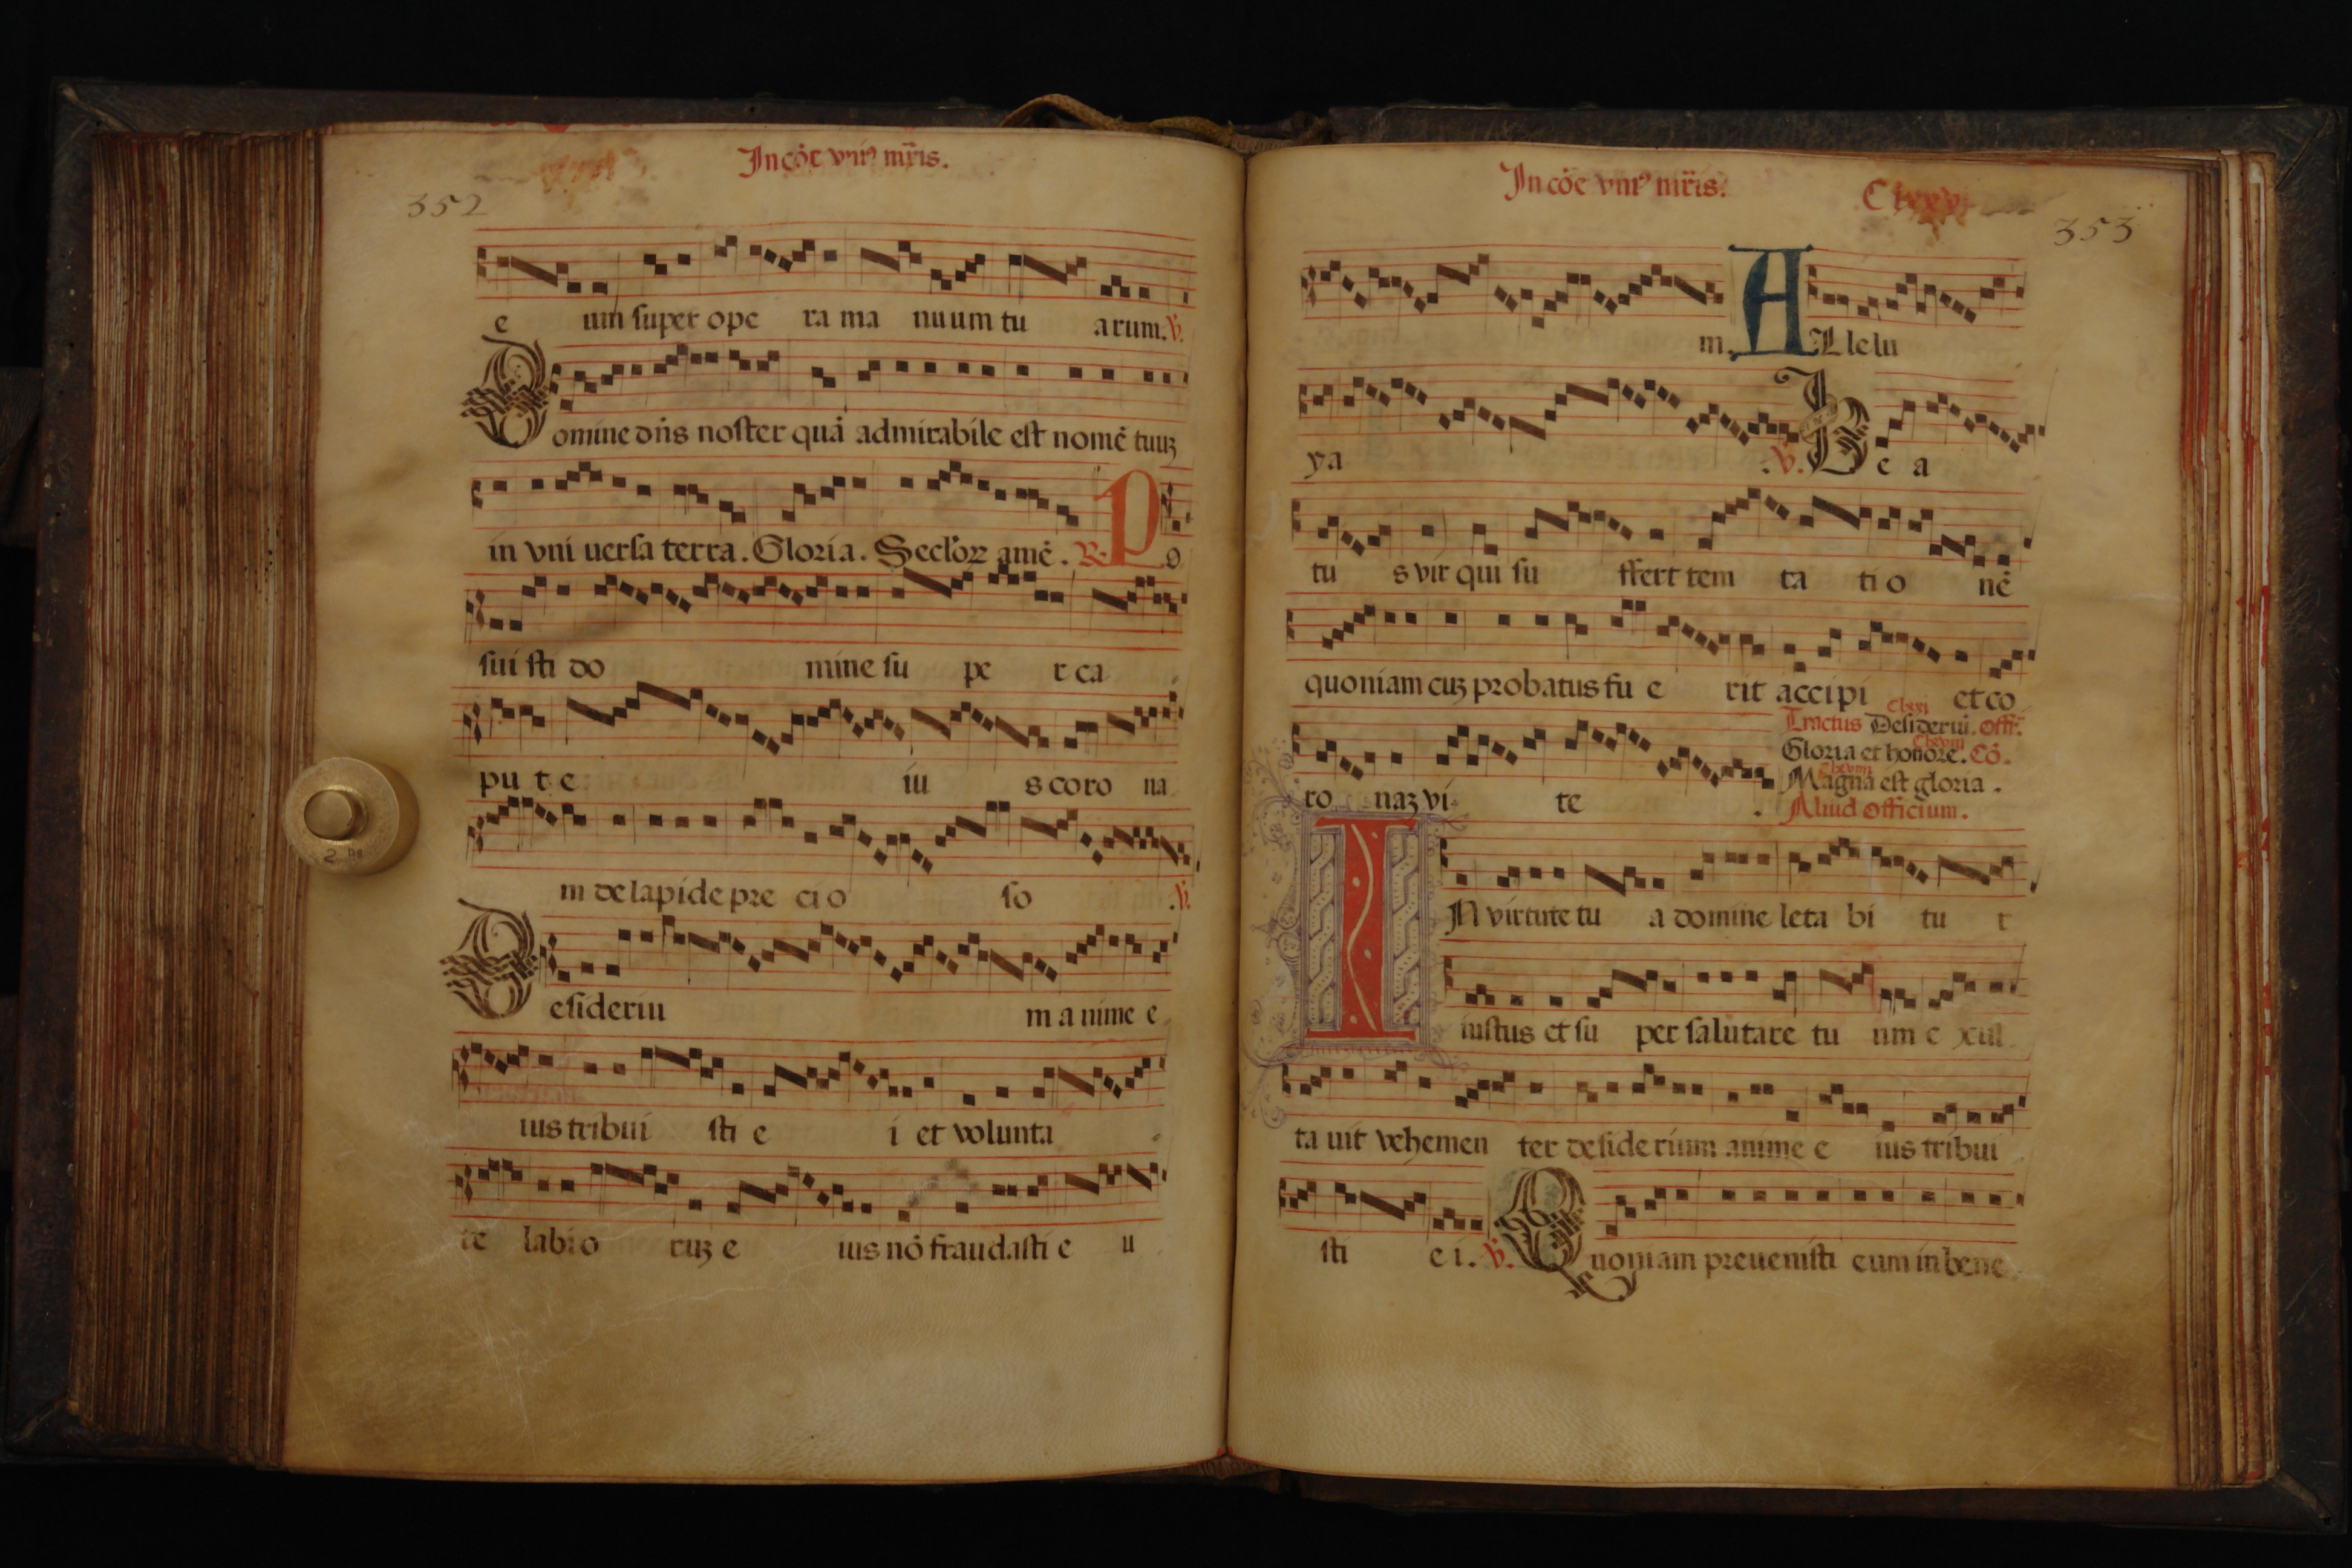 352
In cōe vniꝰ mr̄is.
e um super ope ra ma nuum tu arum. ℣.
Domine dn̄s noster quā admirabile est nomē tuuꝫ
in vni uersa terra. Gloria. Seclꝝ amē. ℟. Po
sui sti do mine su pe r ca
pu t e iu s coro na
m de lapide pre ci o so . ℣.
Desideriu m a nime e
ius tribui sti e i et volunta
te labi o ruꝫ e ius nō fraudasti e u
In cōe vniꝰ mr̄is.
353
m. ALlelu
ya . ℣. Be a
tu s vir qui su ffert tem ta ti o nē
quoniam cuꝫ probatus fu e rit accipi et co
ro naꝫ vi te .
Clxxi
Tractus Desideriū. Off̄.
Gloria et honore. Cō.
Magna est gloria.
Aliud officium.
IN virtute tu a domine leta bi tu r
iustus et su per salutare tu um e xul
ta uit vehemen ter desiderium anime e ius tribui
sti e i. ℣. Quoniam preuenisti eum in bene